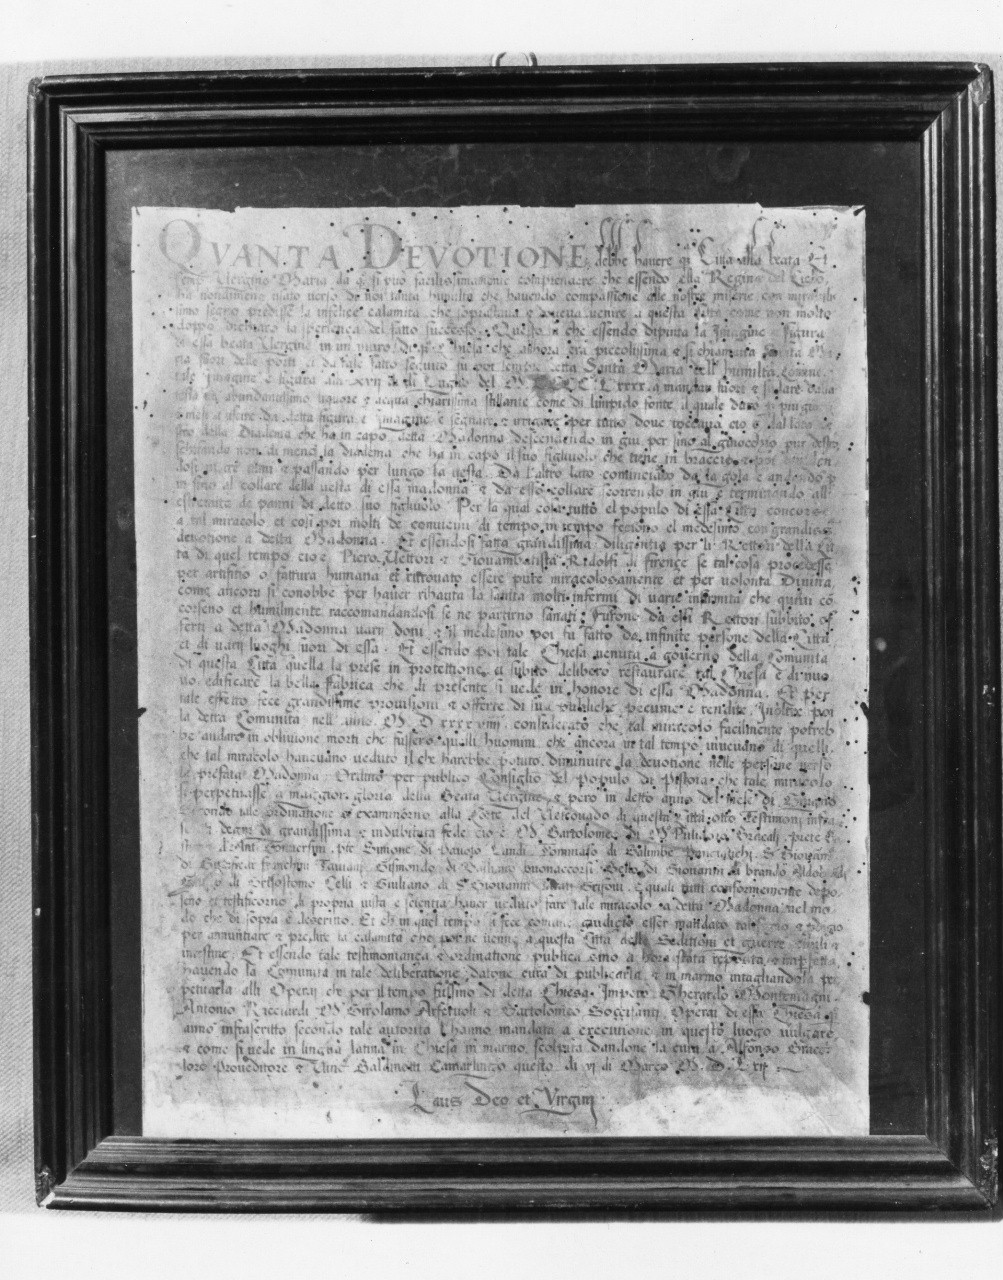 QVANTA DEVOTIONE debbe havere qta Citta alla beata et
semp Vergine Maria da q si puo facilissimamente comprendere che essendo ella Regina del Cielo
ha nondimeno usato verso di noi tanta humilta che havendo compassione alle nostre miserie con mirabilis
simo segno predisse la infelice calamita che soprastava e doveva venire a questa come non molto
doppo dichiaro la sperienza del fatto successo. Questo e che essendo dipinta la Imagine e figura
di essa beata Vergine in un muro di qta Chiesa che alhora era piccolissima e si chiamava Santa Ma
ria fuori delle porti et da tale fatto seguito fu poi sempre detta Santa Maria dell humilta
tale Imagine e figura alli xvij di Luglio del M LXXXX a mandar fuori e sudare dalla
testa abundantissimo liquore e acqua chiarissima stillante come di limpido fonte il quale duro
mesi a uscire da detta figura e Imagine e segnare e irrigare per tutto dove toccava cio e dal lato
stro della Diadema che ha in capo detta Madonna descendendo in giu per sino al ginocchio pur destro
schifando non di meno la diadema che ha in capo il suo figliuolo che tiene in braccio e poi
dosi e passando per lungo la vesta. Da l'altro lato cominciava da la gola e andando p
in sino al collare della vesta di essa madonna e da esso collare scorrendo in giu e terminando all
estremita de panni di detto suo figliuolo. Per la qual cosa tutto el populo di essa Citta concorse
a tal miracolo et cosi poi molti de convicini di tempo in tempo feciono el medesimo con grandiss
devotione a detta Madonna. Et essendosi fatta grandissima diligentia per li Rettori della Cit
ta di quel tempo cioe Piero Vettori e Giovambatista Ridolfi di firenze se tal cosa procedesse
per artifitio o fattura humana et ritrovato essere pure miracolosamente et per volonta Divina
come ancora si conobbe per haver rihauta la sanita molti infermi di varie infirmita che quivi co
corseno et humilmente raccomandandosi se ne partirno sanati. Furono da essi Rettori subbito of
ferti a detta Madonna varij doni e il medesimo poi fu fatto da infinite persone della Citta
et di varij luoghi fuori di essa. Et essendo poi tale Chiesa venuta a governo della Comunita
di questa Citta quella la prese in protettione et subito delibero restaurare tal Chiesa e di nuo
vo edificare la bella fabrica che di presente si vede in honore di essa Madonna. Et per
tale effetto fece grandissime provisioni e offerte di sua publiche pecunie e rendite. Inoltre poi
la detta Comunita nell anno M D XXXXVIIII considerato che tal miracolo facilmente potreb
be andare in oblivione morti che fussero quelli huomini che ancora in tal tempo vivevano di quelli
che tal miracolo havevano veduto il che harebbe potuto diminuire la devotione nelle persone verso
la prefata Madonna. Ordino per publico Consiglio del Populo di Pistoia che tale miracolo
si perpetuasse a maggior gloria della Beata Vergine e pero in detto anno del mese di Giugno
secondo tale ordinatione si examinorno alla Corte del Vescovado di questa Citta otto testimoni infra
e degni di grandissima e indubitata fede cio e M Bartolomeo di M Philippo Bracali prete
pre Simone di Pavolo Landi Tommaso di Balimbe Panciatichi S Giovan
di Franchini Taviani Gismondo di Bastiano buonaccorsi di Giovanni
di Grisostomo Celli e Giuliano di S Giovanni Grisoni e quali tutti conformemente depo
seno et testificorno di propria vista e scientia haver veduto fare tale miracolo a detta Madonna nel mo
do che di sopra e descritto. Et ch in quel tempo si fece comune giuditio esser mandato tal segno
per annuntiare e predire la calamita che poi ne venne a questa Citta delle Seditioni et guerre civili e
intestine. Et essendo tale testimonianza e ordinatione publica sino a hora stata
havendo la Comunita in tale deliberatione datone cura di publicarla e in marmo intagliandola per
petuarla alli Operai che per il tempo fussino di detta Chiesa. Impero Gherardo Montemagni
Antonio Ricciardi M Girolamo Arfaruoli e Bartolomeo Sozzifanti Operai di essa Chiesa
anno infrascritto secondo tale autorita l'hanno mandata a executione in questo luogo vulgare
e come si vede in lingua latina in Chiesa in marmo scolpita dandone la cura a Alfonso Bracc
loro Proveditore e Baldinotti Camarlingo questo di vi di Marzo M D Lxij
Laus Deo et Virginj